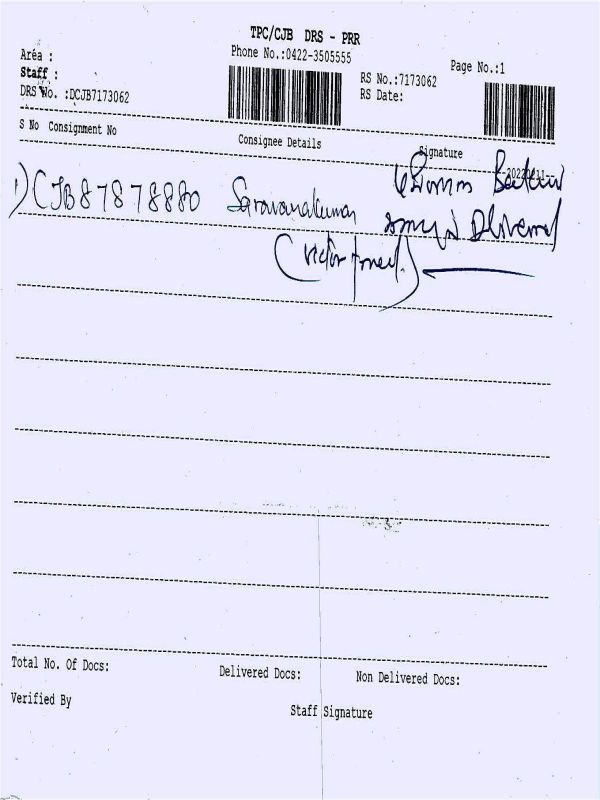 TPC/CJB DRS - PRR
Aréa :
Phone No.:0422-3505555
Page No.:1
Staff :
RS No.:7173062
DRS No. :DCJB7173062
RS Date:
S No Consignment No Consignee Details Signature
1) CJB87878880 Saravanakumar
Total No. Of Docs: Delivered Docs: Non Delivered Docs:
Verified By
Staff Signature